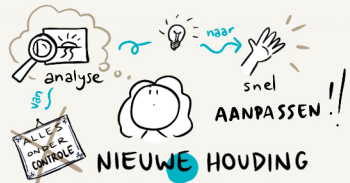 naar
analyse
van
snel
AANPASSEN!!
ALLES
ONDER
CONTROLE
NIEUWE HOUDING